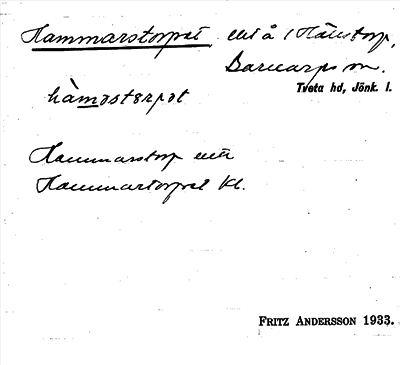 Hammarstorpet, utt å i Hättstorp,
Barnarps sn.
Tveta hd, Jönk. l.
hàmostƨrpət
Hammarstorp utt
Hammartorpet Kl.
FRITZ ANDERSSON 1933.